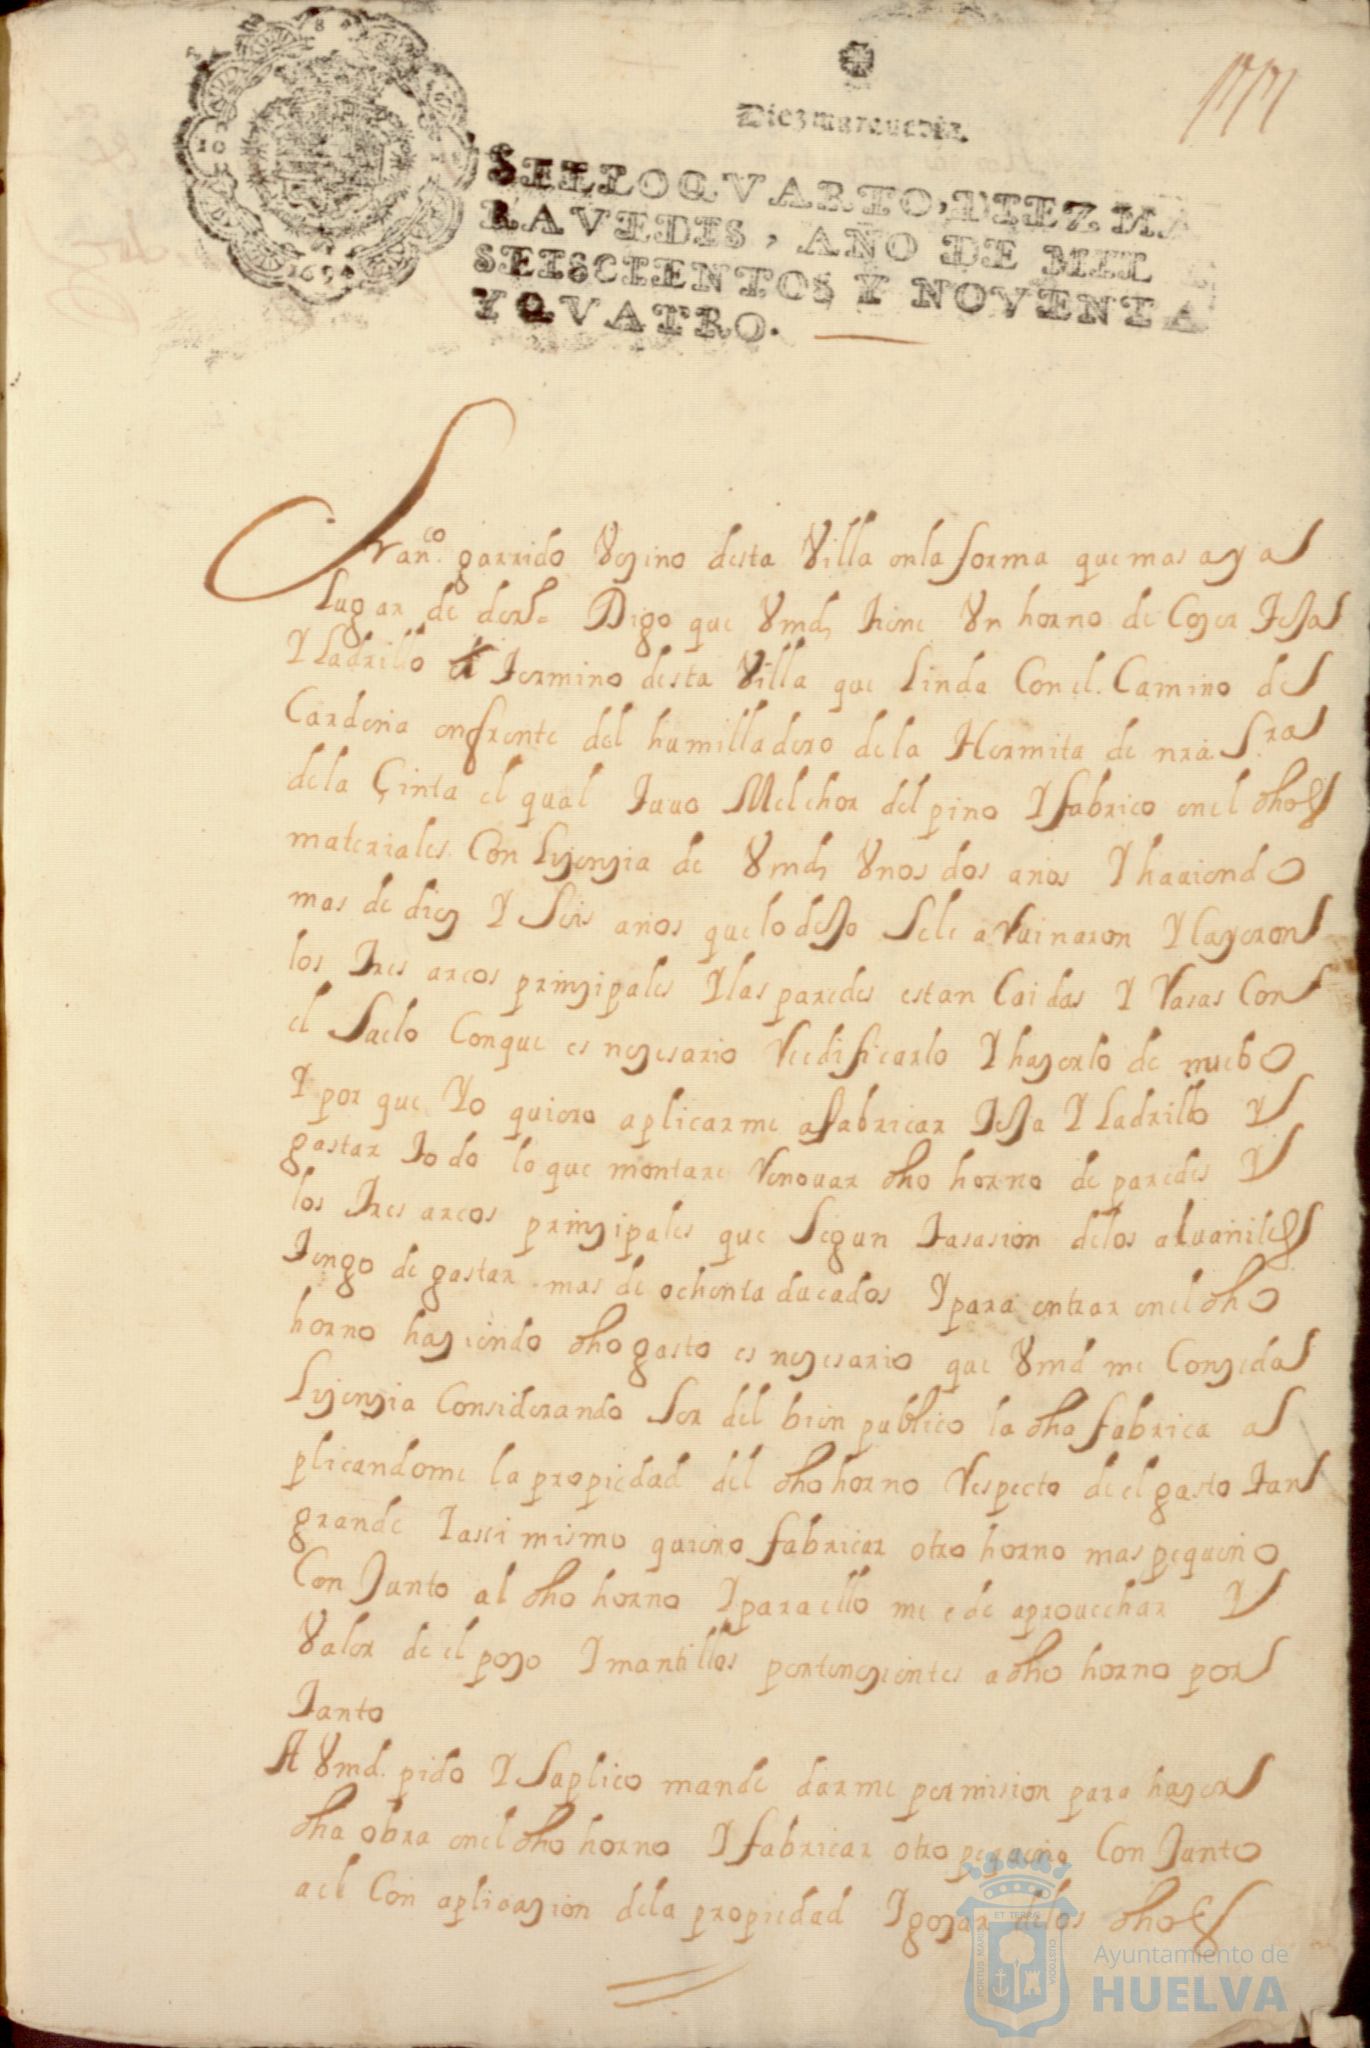 Diez maravedis.
SELLO QVARTO, DIEZ MA
RAVEDIS, AÑO DE MIL
SEISCIENTOS Y NOVENTA
Y QVATRO.
1694
Franco. garrido Vezino desta Villa enla forma que mas aya
Lugar de dero. Digo que Vmd tiene Vn horno de Cozer teja
Y Ladrillo termino desta Villa que Linda Con el Camino de
Cardeña enfrente del humilladero dela Hermita de nra Sra
dela Çinta el qual tuuo Melchor del pino Y fabrico enel dhos
materiales Con Lizenzia de Vmd Vnos dos años Y hauiendo
mas de diez Y Seis años que lo dejo Se le a Ruinaron Y Cayeron
los tres arcos prinzipales Y las paredes estan Caidas Y Rasas Con
el Suelo Con que es nezesario Reedificarlo Y hazerlo de nuebo
Y por que Yo quiero aplicarme a fabricar teja Y Ladrillo Y
gastar todo lo que montare Renouar dho horno de paredes Y
los tres arcos prinzipales que Segun tasasion delos aluañiles
tengo de gastar mas de ochenta ducados Y para entrar enel dho
horno haziendo dho gasto es nezesario que Vmd me Conzeda
Lizenzia Considerando Ser del bien publico la dha fabrica a
plicandome la propiedad del dho horno Respecto de el gasto tan
grande Y asi mismo quiero fabricar otro horno mas pequeño
Con Junto al dho horno Y para ello me e de aprouechar Y
Valer de el pozo Y mantillos pertenezientes a dho horno por
tanto
A Vmd. pido Y Suplico mande darme permision para hazer
dha obra enel dho horno Y fabricar otro pequeño Con Junto
a el Con aplicazion dela propiedad Y gozar delos dhos
PORTUS MARIS ET TERRAE CUSTODIA
Ayuntamiento de
HUELVA